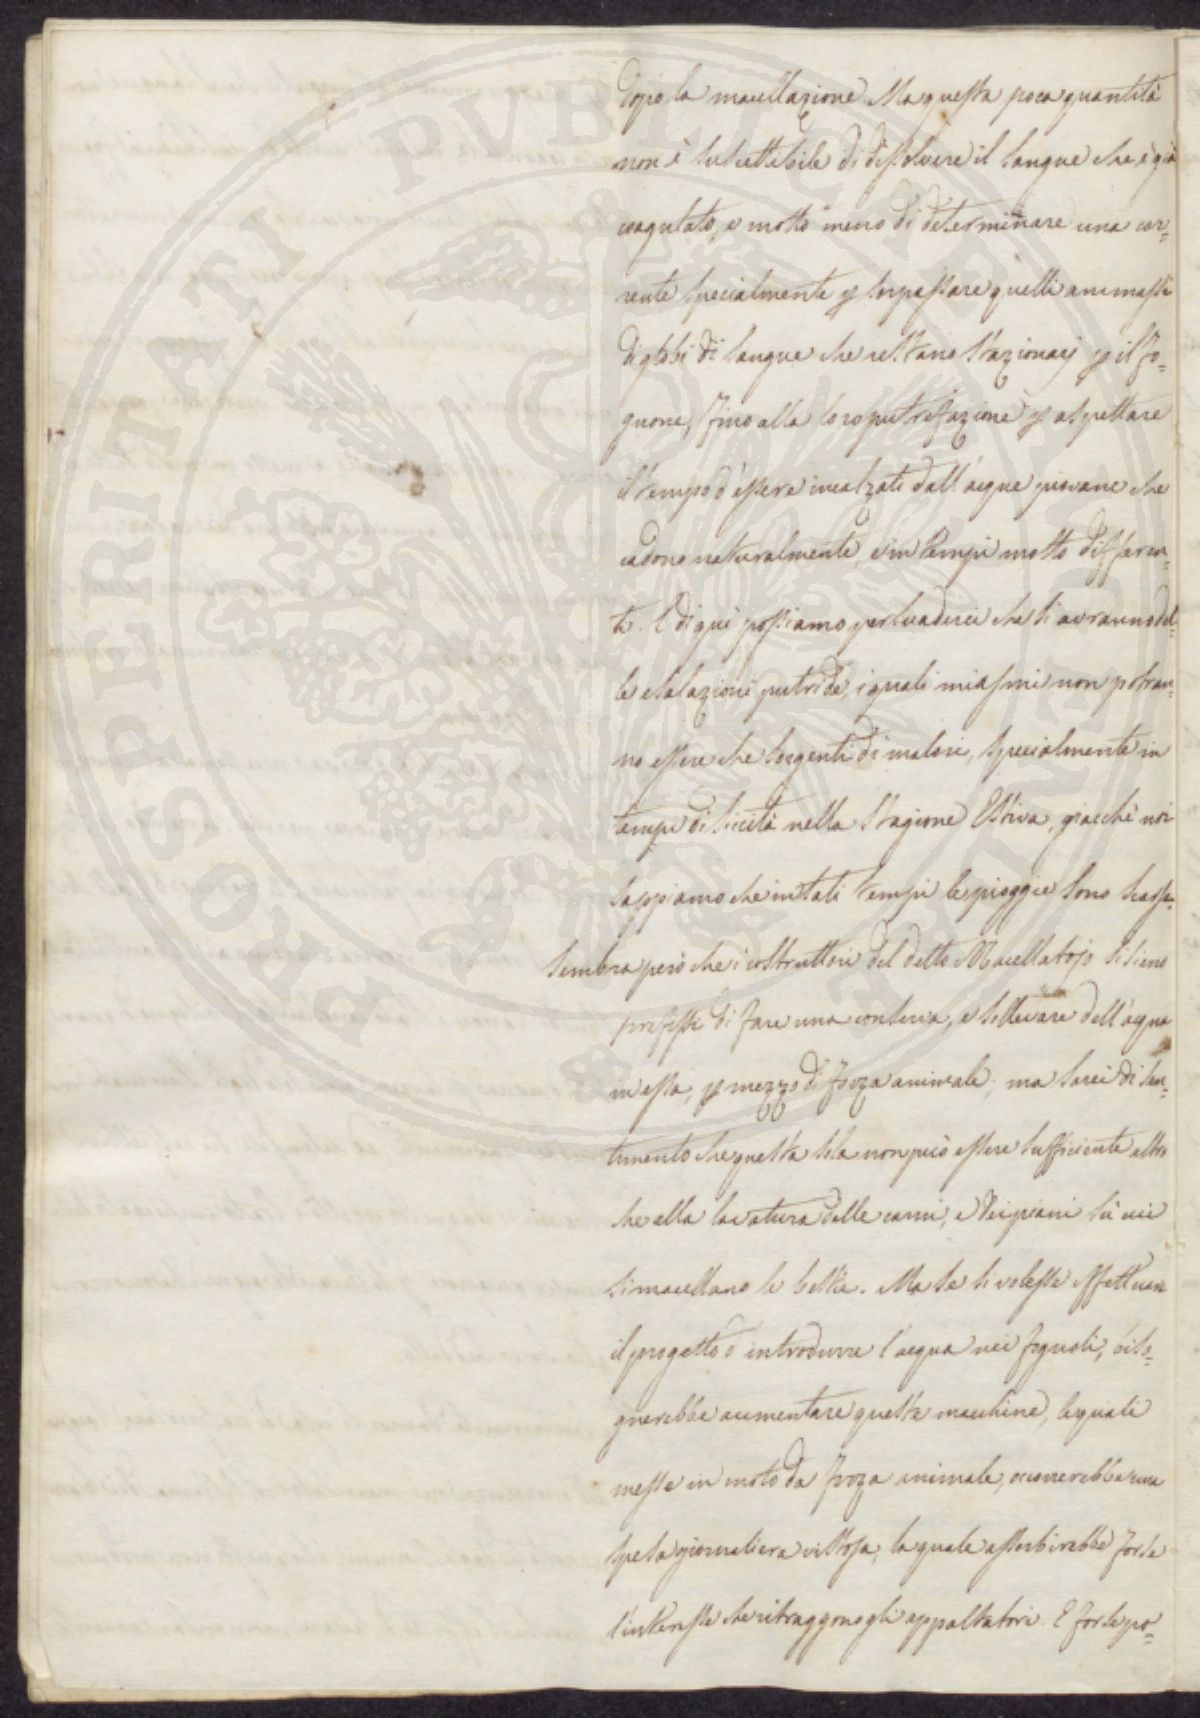 dopo la macellazione. Ma questa poca quantità
non è suscettibile di dissolvere il sangue che è già
coagulato, e molto meno di determinare una cor=
rente specialmente p sorpassare quelli ammassi
di globi di sangue che restano stazionarj p il fo=
gnone, fino alla loro putrefazione p aspettare
il tempo d'essere incalzati dall'acque piovane che
cadono naturalmente, e in tempi molto differen=
ti. E di qui possiamo persuaderci che si avranno del=
le esalazioni putride, i quali miasmi non potran=
no essere che sorgenti di malori, specialmente in
tempi di siccità nella stagione Estiva, giacchè noi
sappiamo che in tali tempi le pioggie sono scarse.
Sembra però che i costruttori del detto Macellatojo si sieno
prefissi di fare una conserva, e sollevare dell'acqua
in essa, p mezzo di forza animale; ma sarei di sen=
timento che questa sola non può essere sufficiente altro
che alla lavatura delle carni, e dei piani sù cui
si macellano le bestie. Ma se si volesse effettuare
il progetto d'introdurre l'acqua nei fognoli, biso=
gnerebbe aumentare queste macchine, le quali
messe in moto da forza animale, occorrerebbe una
spesa giornaliera vistosa, la quale assorbirebbe forse
l'interesse che ritraggono gli appaltatori. E forse po=
PROSPERITATI PVBLICAE